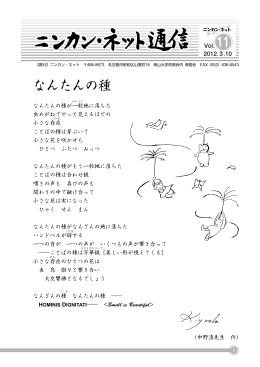 ニンカン・ネット通信
ニンカン・ネット
Vol. 11
2012. 3 .10
なんたんの種
なんたんの種が一粒地に落ちた
虫めがねでやっと見えるほどの
小さな存在
ことばの種は芽ぶいて
小さな花を咲かせた
ひとつ ふたつ みっつ
なんたんの種がもう一粒地に落ちた
ことばの種は合わせ鏡
嘆きの声も 喜びの声も
関わりの中で融け合って
小さな花は実になった
ひゃく せん まん
なんたんの種がなんざんの地に落ちた
ハンドベルが
一つの音が 一つの声が いくつもの声が響き合って
──ことばの種は万華鏡［美しい形が視えてくる］
小さな存在のひとつの花は
虫 鳥 樹々と響き合い
大交響曲となるでしょう
なんざんの種 なんたんの種 ──
HOMINIS DIGNITATI── <Small is Beautiful>
Kiyoshi
（中野清先生 作）